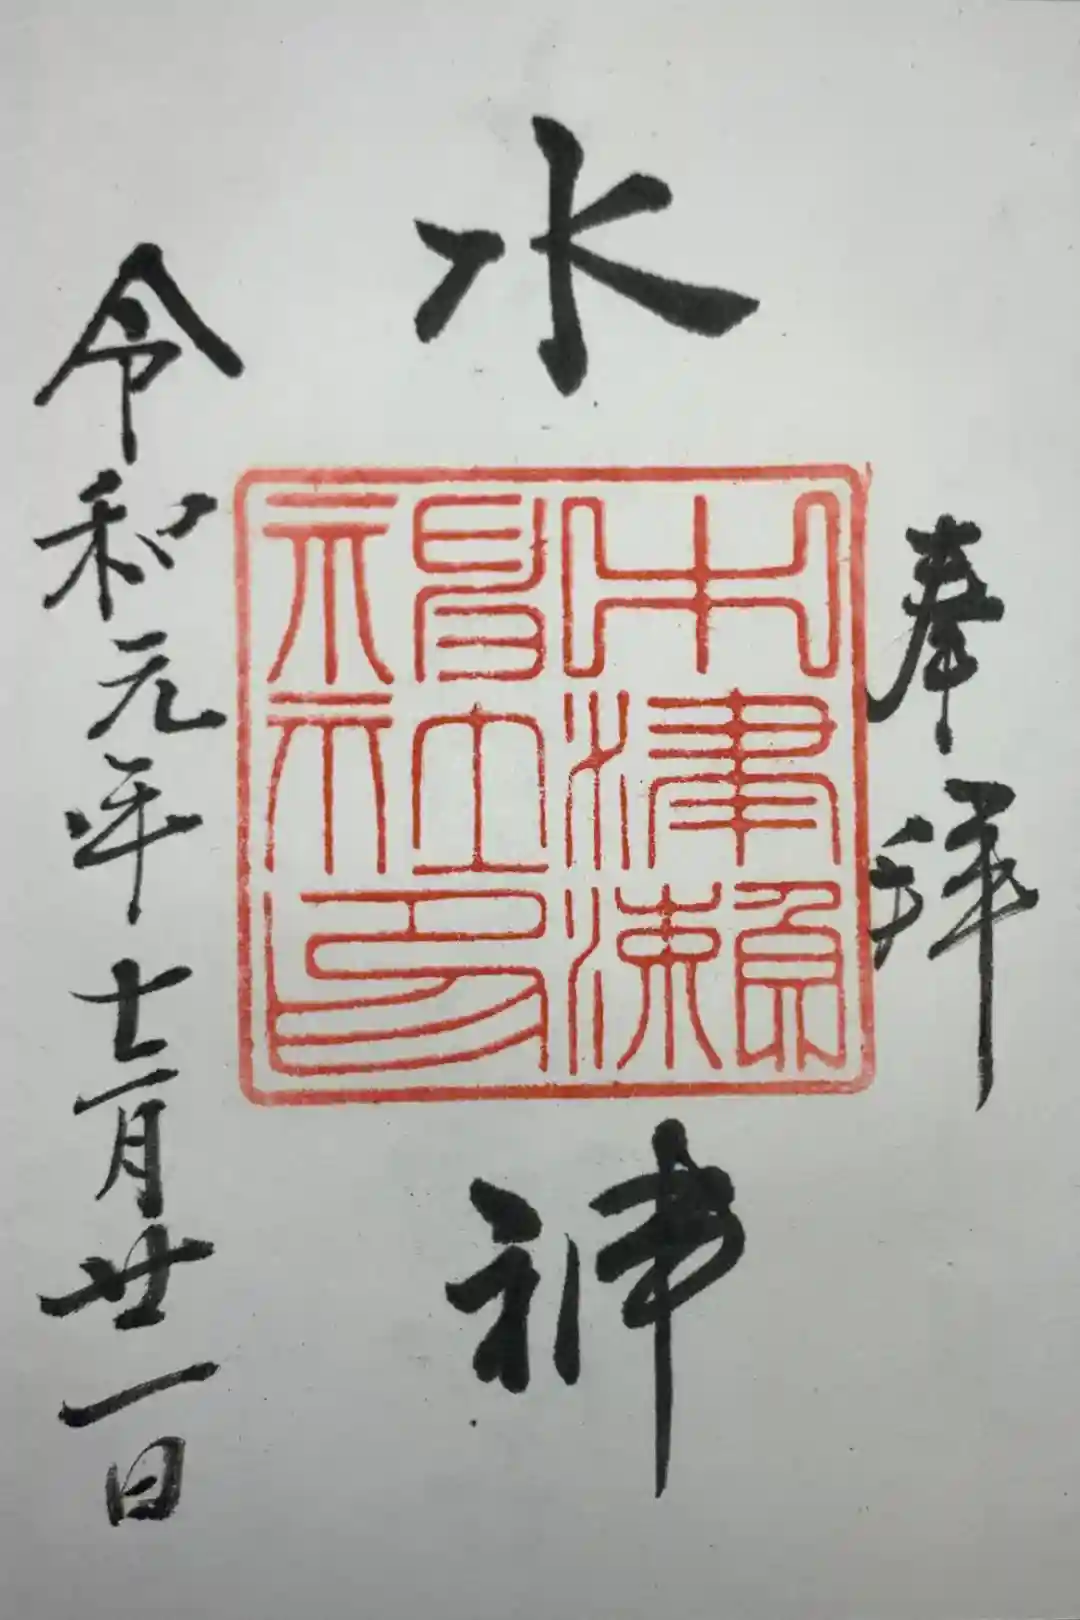 奉拝
水神
中津瀬
神社印
令和元年十二月廿一日